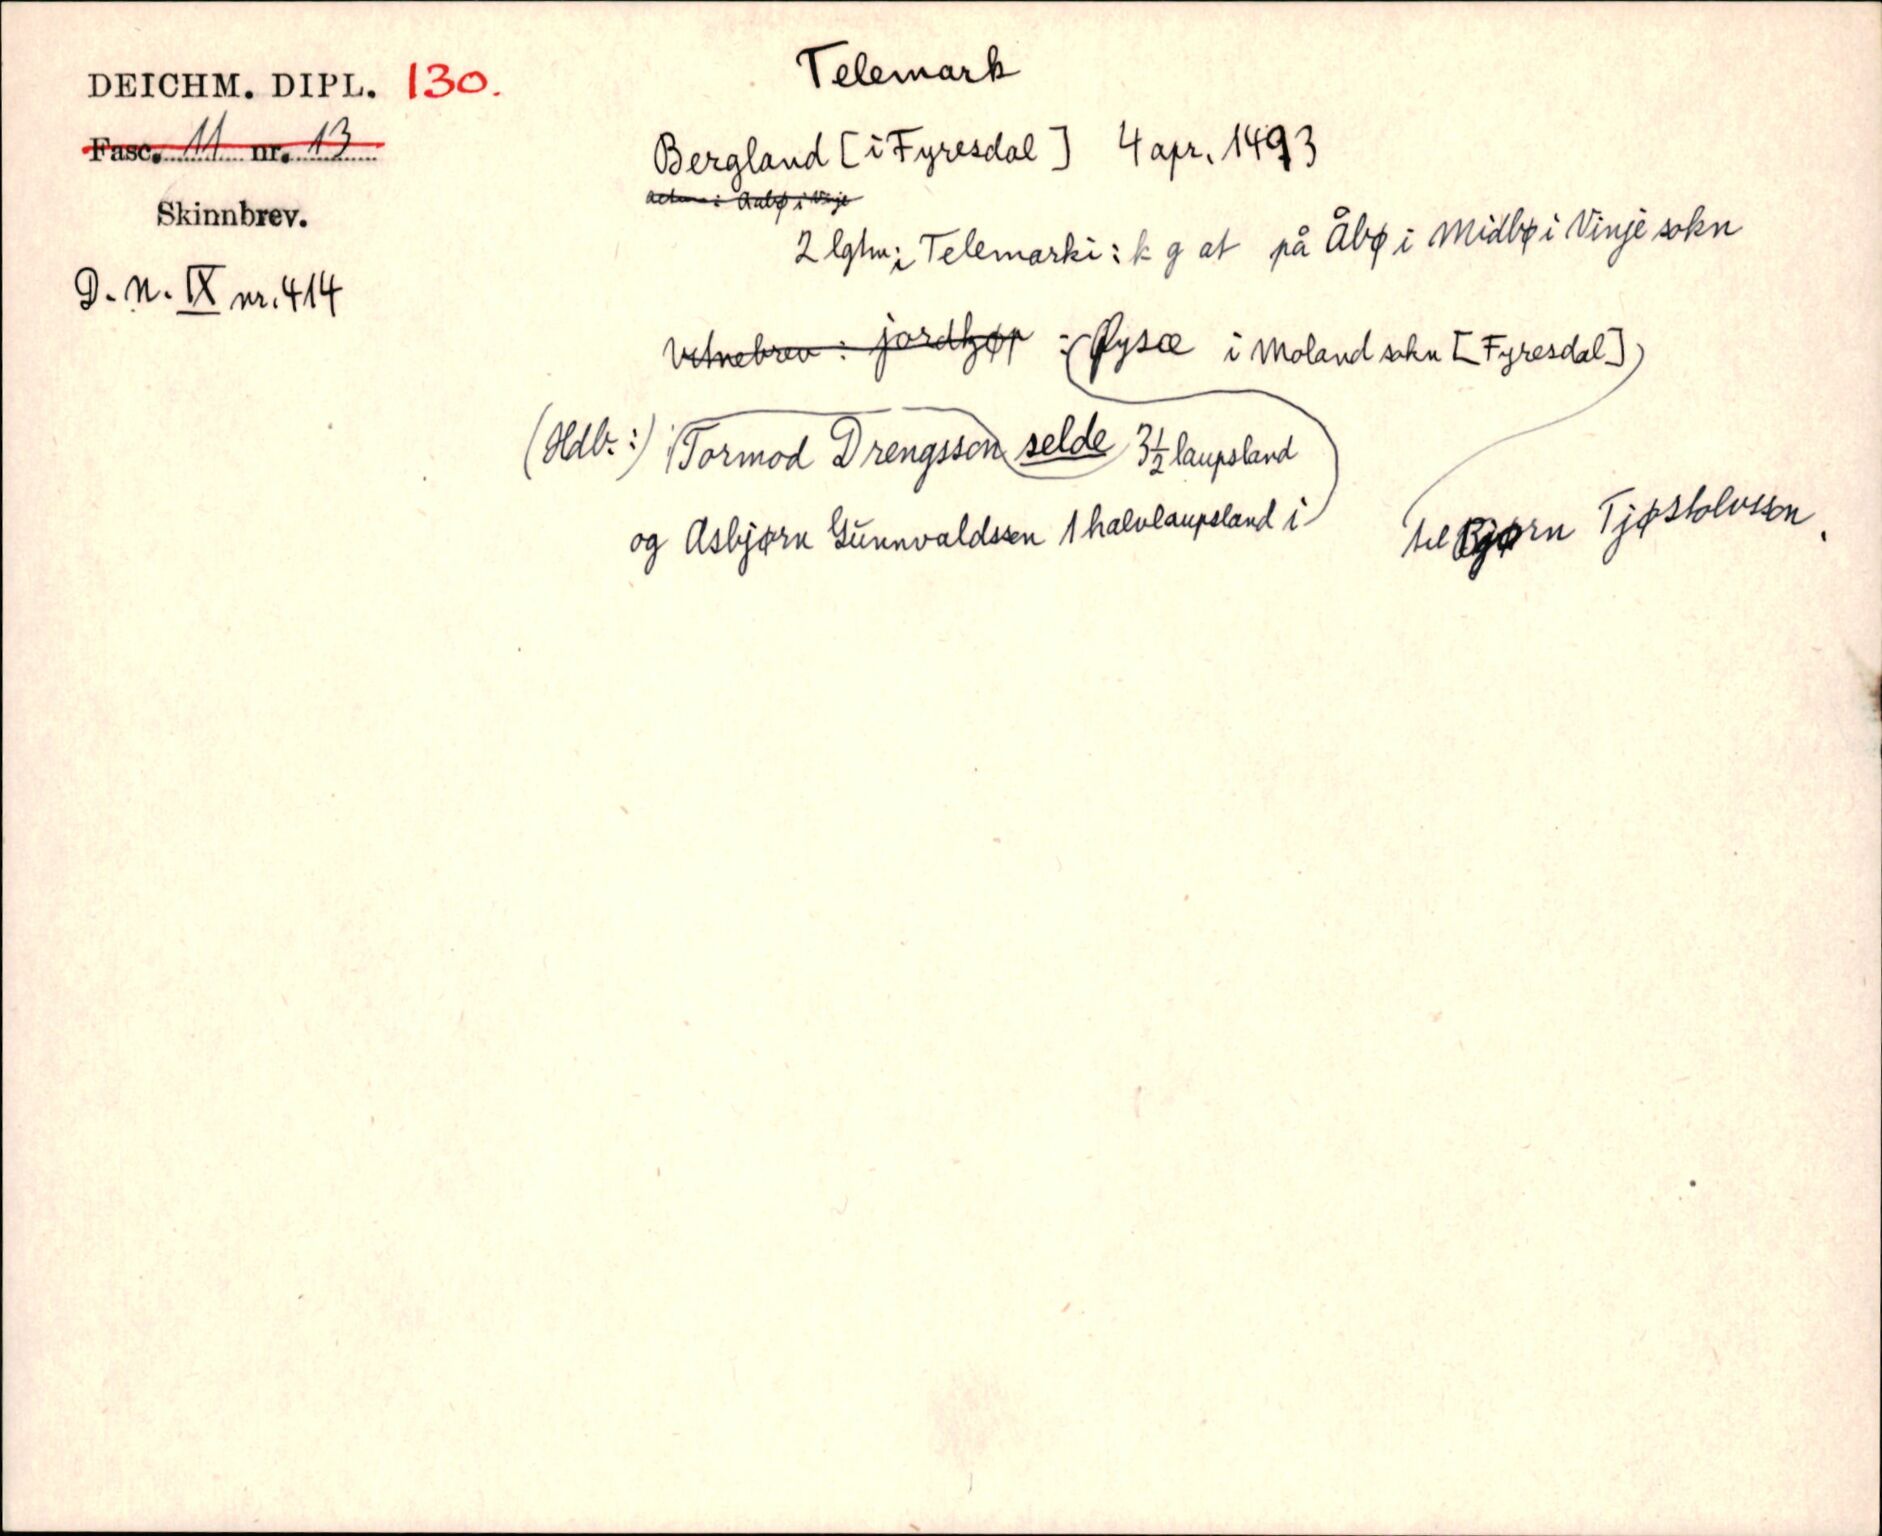 DEICHM. DIPL. 130.
Fasc. 11 nr. 13
Skinnbrev.
D. N. IX nr. 414
Telemark
Bergland [i Fyresdal] 4 apr. 1493
Aabø i Vinje
2 lgtm i Telemarki: k g at på Åbø i Midbø i Vinje sokn
Vitnebrev: jordkjøp : Øysæ i Moland sokn [Fyresdal]
(Hdb:) Tormod Drengsson selde 3½ laupsland
og Asbjørn Gunnvaldssen 1 halvlaupsland i
til Bjørn Tjøstolvsson.